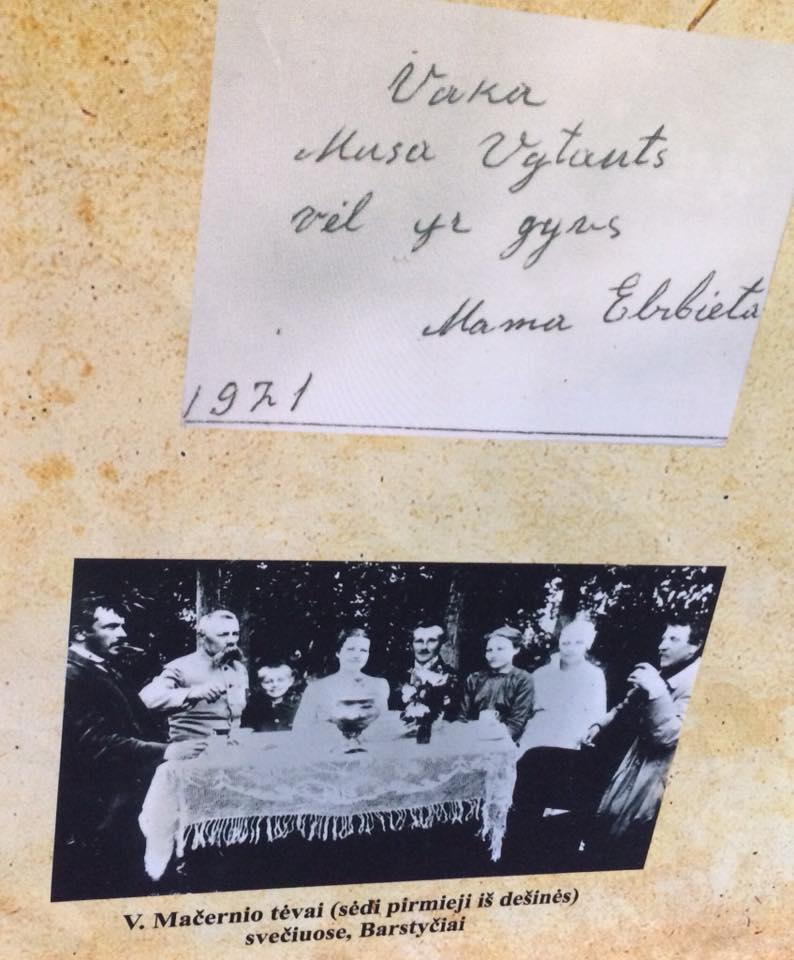 Vaka
Musa Vytauts
vėl yr gyvs
Mama Elzbieta
1971
V. Mačernio tėvai (sėdi pirmieji iš dešinės)
svečiuose, Barstyčiai